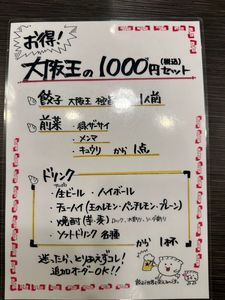 お得!
大阪王の1000円セット
(税込)
・餃子 大阪王 1人前
・前菜 ・ザーサイ
・メンマ
・キュウリ から1点
・ドリンク
・生ビール ・ハイボール
・チューハイ(生レモン・プレーン)
・焼酎(芋・麦)ロック、水割り、ソーダ割り
・ソフトドリンク 各種
から1杯
迷ったら、とりあえずコレ!
追加オーダーOK!!